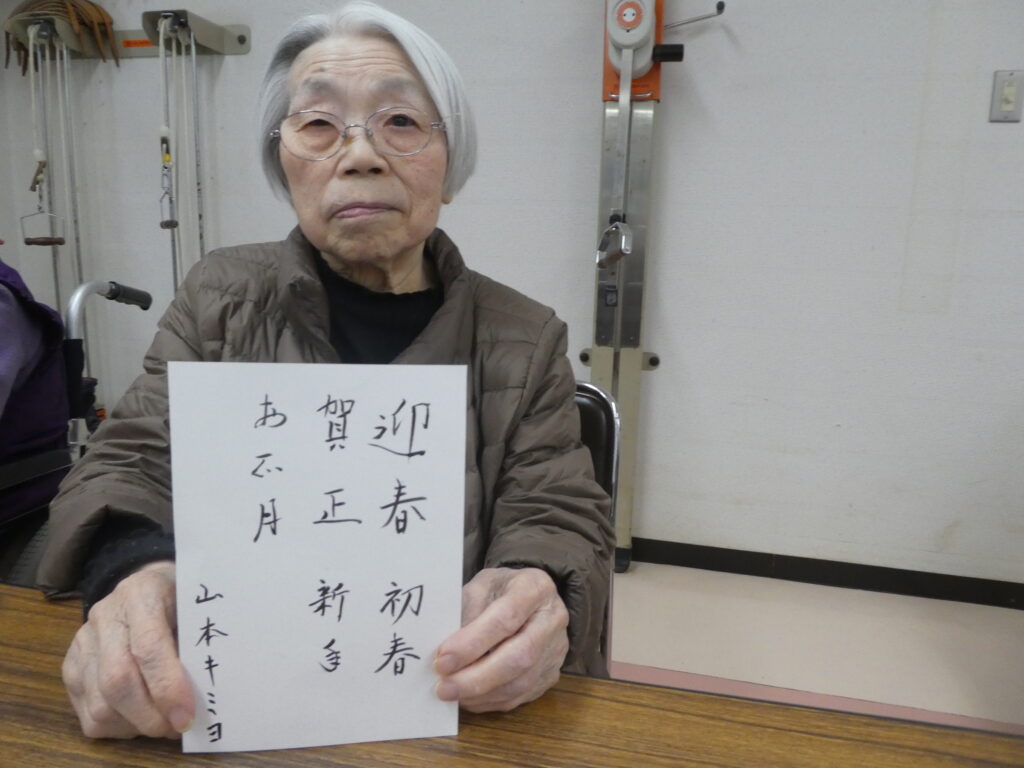 迎春 初春
賀正 新年
お正月
山本キミヨ